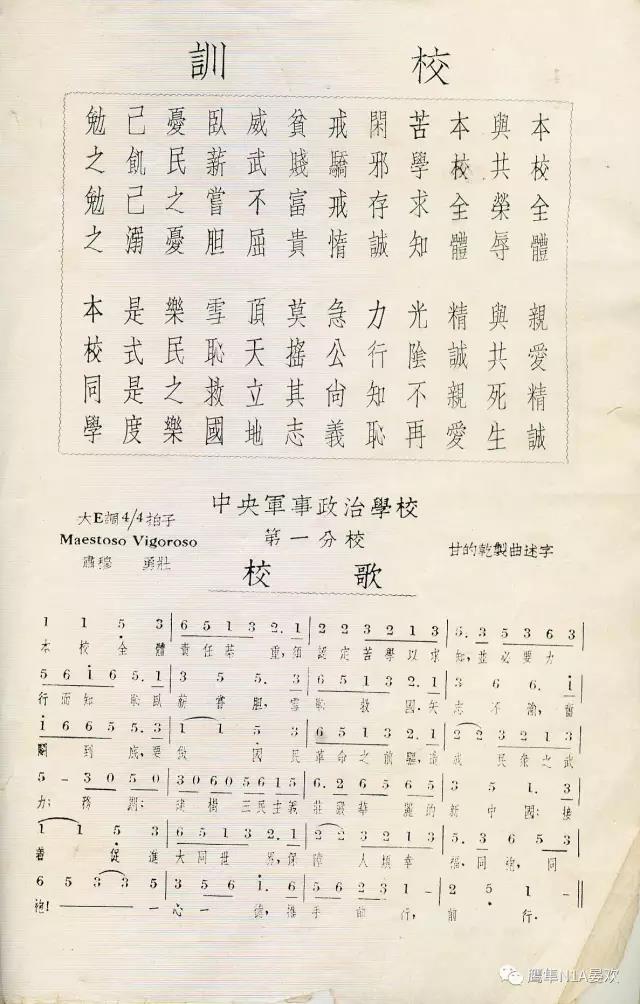 校訓
本校全體 親愛精誠
與共榮辱 與共死生
本校全體 精誠親愛
苦學求知 光陰不再
閑邪存誠 力行知恥
戒驕戒惰 急公尙義
貧賤富貴 莫搖其志
威武不屈 頂天立地
臥薪嘗胆 雪恥救國
憂民之憂 樂民之樂
己飢己溺 是式是度
勉之勉之 本校同學
中央軍事政治學校
第一分校
校歌
大E調4/4拍子
Maestoso Vigoroso
肅穆 勇壯
甘的乾製曲述字
1 1 5 3 | 6 5 1 3 2. 1 | 2 2 3 2 1 3 | 5. 3 5 3 6 3
本校全體責任綦重,須認定苦學以求知,並必要力
5 6 1 6 5. 1 | 3 5 5. 3 | 6 5 1 3 2. 1 | 3 6 6. 1
行而知恥臥薪嘗胆,雪恥救國矢志不渝,奮
1 6 6 5 5. 3 | 1 1 5 3 | 6 5 1 3 2. 1 | 2 2 3 2 1 3
鬭到底,要做國民革命之前驅,造成民衆之武
5 - 3 0 5 0 | 3 0 6 0 5 6 1 5 | 6. 2 6 5 6 5 | 3 5 1. 3
力;務期:建樹三民主義莊嚴華麗的新中國;接
1 1 5 3 | 6 5 1 3 2. 1 | 2 2 3 2 1 3 | 5. 3 6 5 3
着促進大同世界,保障人類幸福,同袍,同
6 5 3 3 5 | 3 5 6 1. 6 | 5 6 2 3 1 - | 2 5 1 -
袍!一心一德,携手前行,前行.
鹰隼N1A晏欢